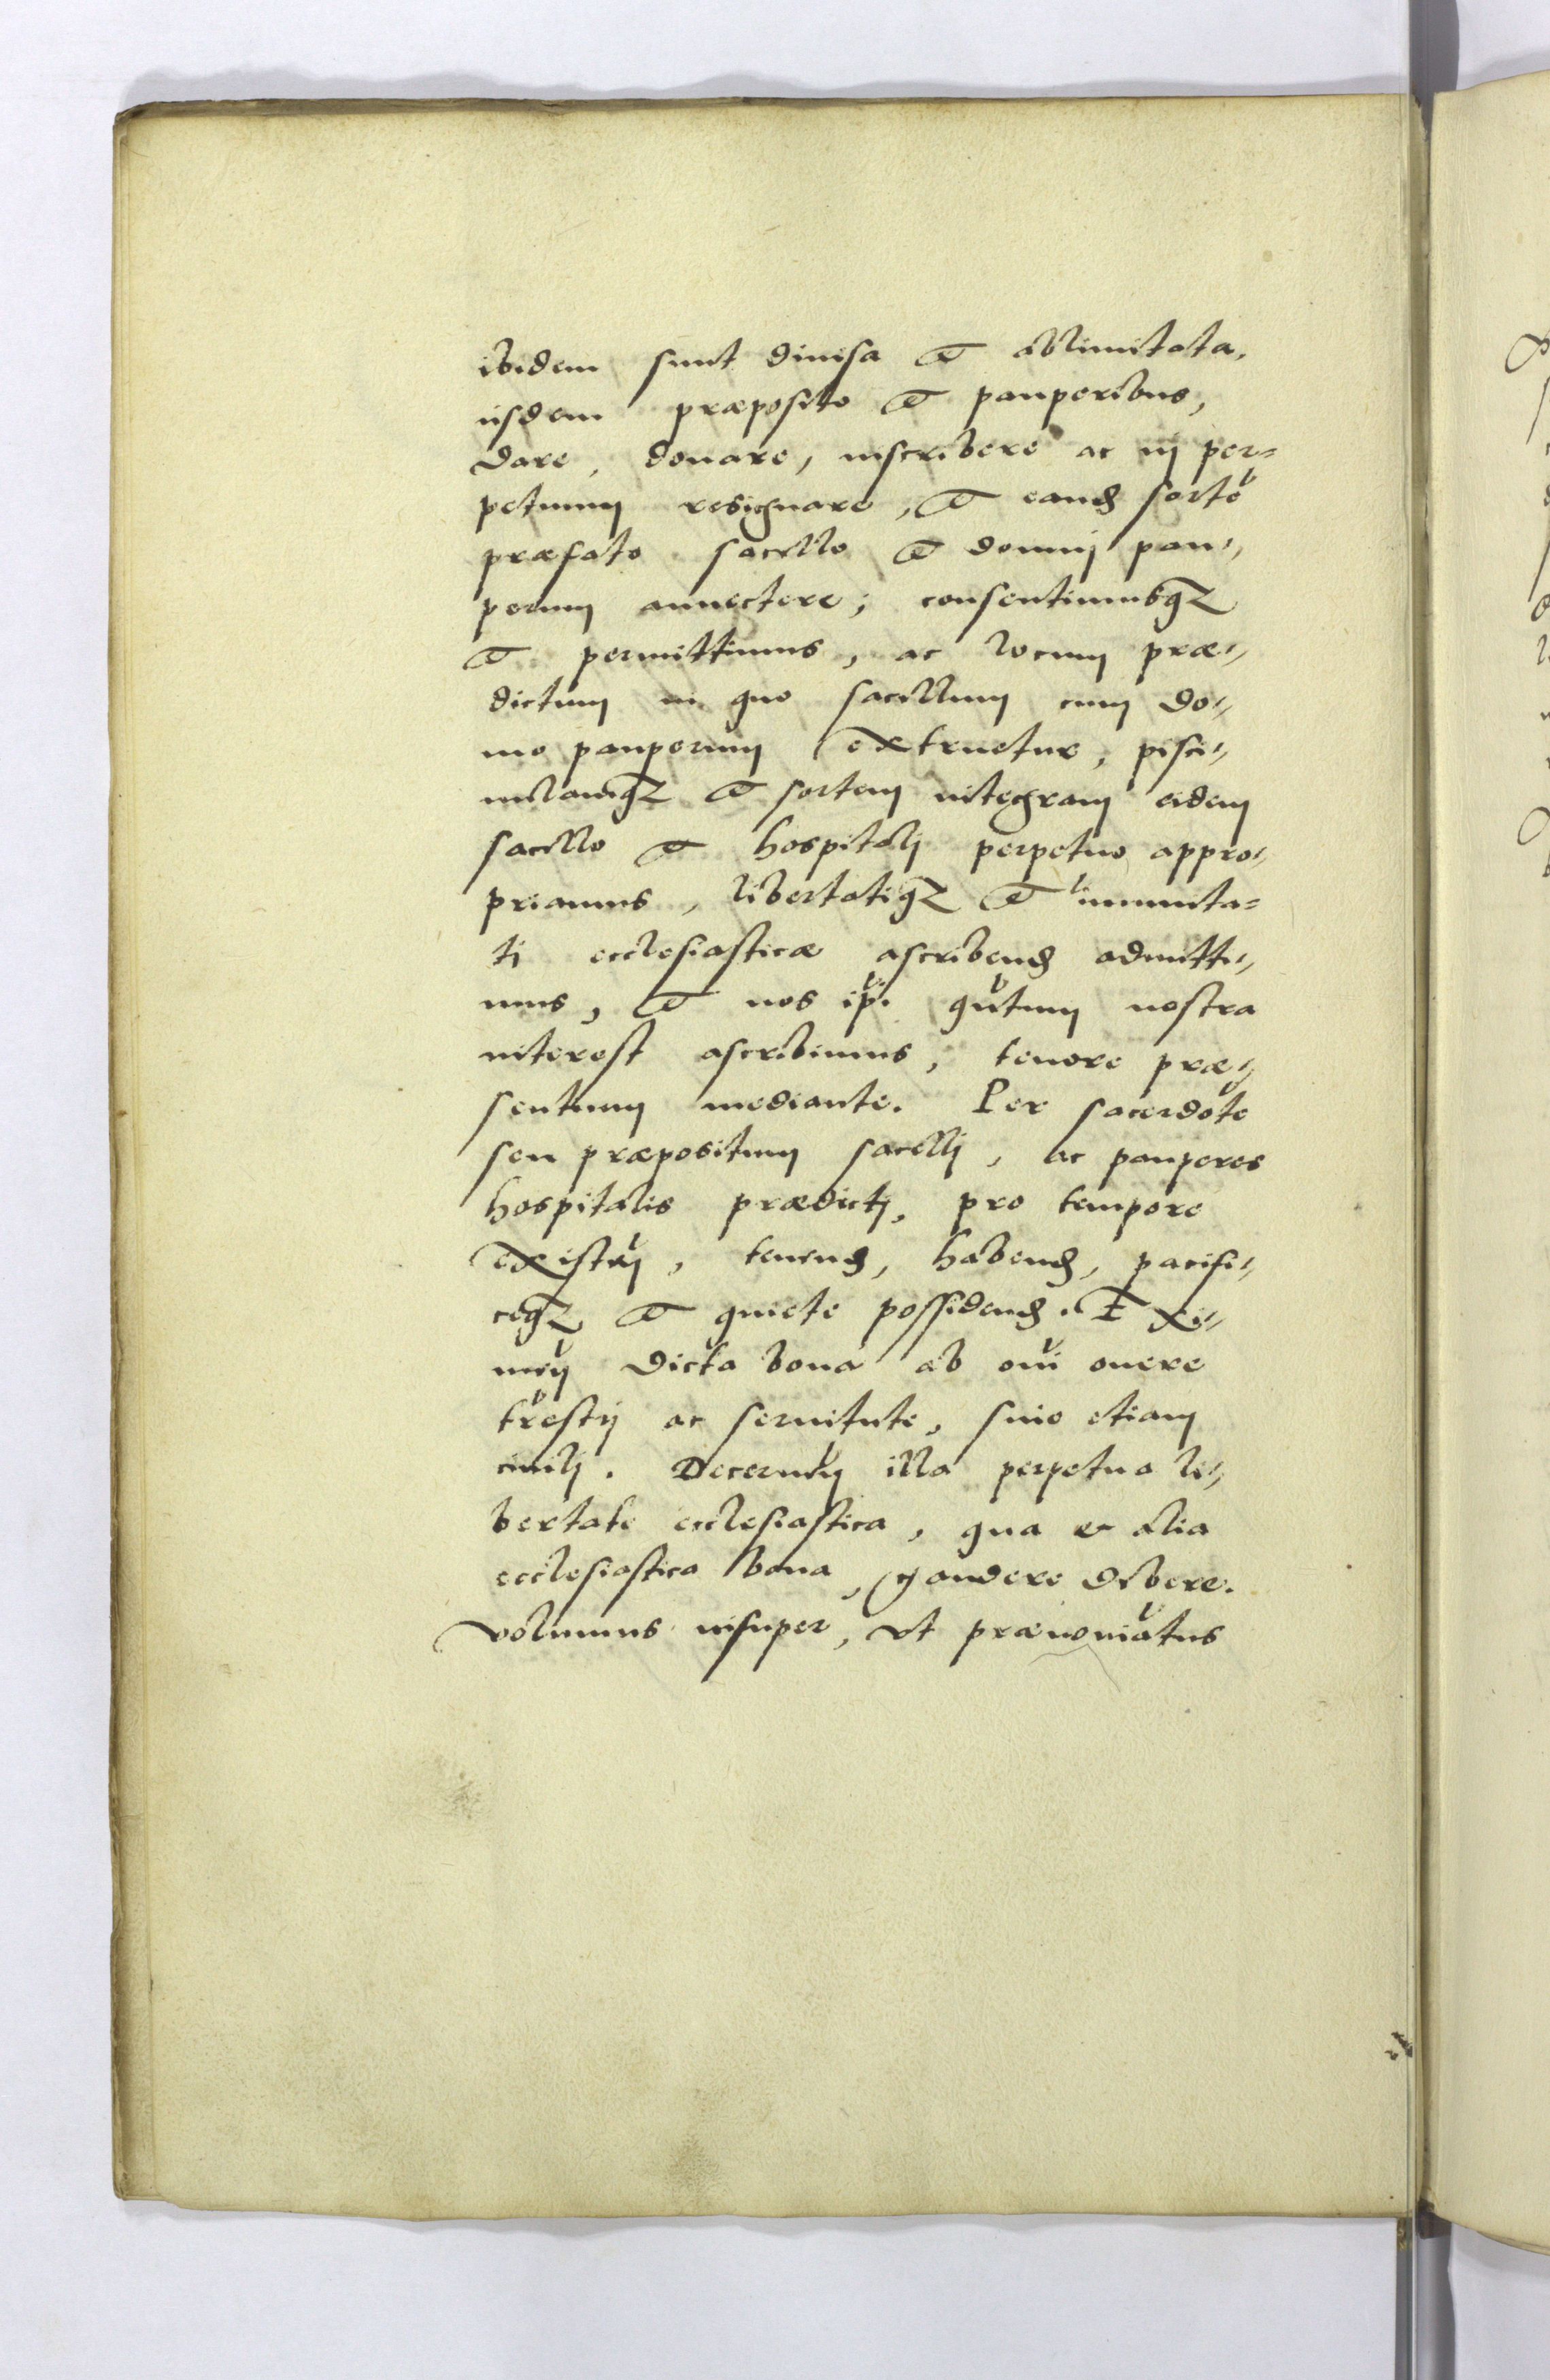 ibidem sunt diuisa et ablimitata,
iisdem præposito et pauperibus,
dare, donare, inscribere ac in per=
petuum resignare, et eand sorte
præfato sacello et domui pau=
perum annectere; consentimusq
et permittimus, ac locum præ=
dictum in quo sacellum cum do=
mo pauperum extruetur, pisci=
nulamq et sortem integram eidem
sacello et hospitali perpetuo appro=
priamus, libertatiq et immunita=
ti ecclesiasticæ ascribend admitti=
mus, et nos ipi qutum nostra
interest ascribimus, tenore præ=
sentium mediante. Per sacerdote
seu præpositum sacelli, ac pauperes
hospitalis prædicti, pro tempore
existen, tenend, habend, pacifi=
ceq et quiete possidend. Exi=
men dicta bona ab oni onere
trestri ac seruitute, siue etiam
ciuili. Decernen illa perpetua li=
bertate ecclesiastica, qua et alia
ecclesiastica bona, gaudere debere.
Volumus insuper, vt prænoniatus